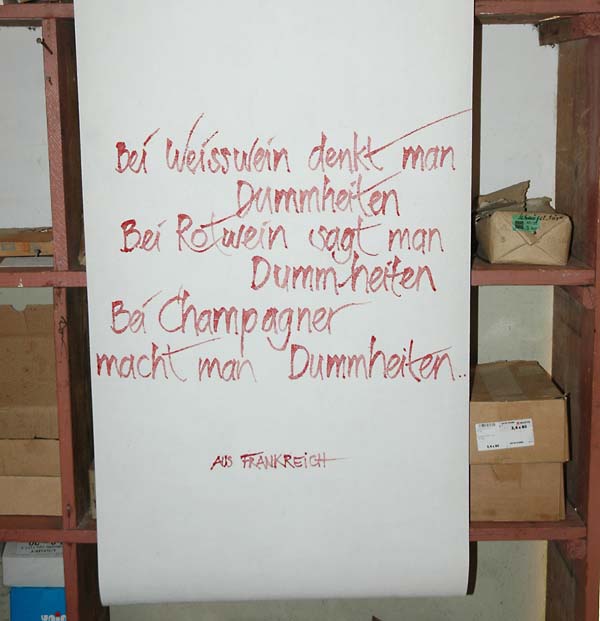 Bei Weisswein denkt man
Dummheiten
Bei Rotwein sagt man
Dummheiten
Bei Champagner
macht man Dummheiten..
AUS FRANKREICH